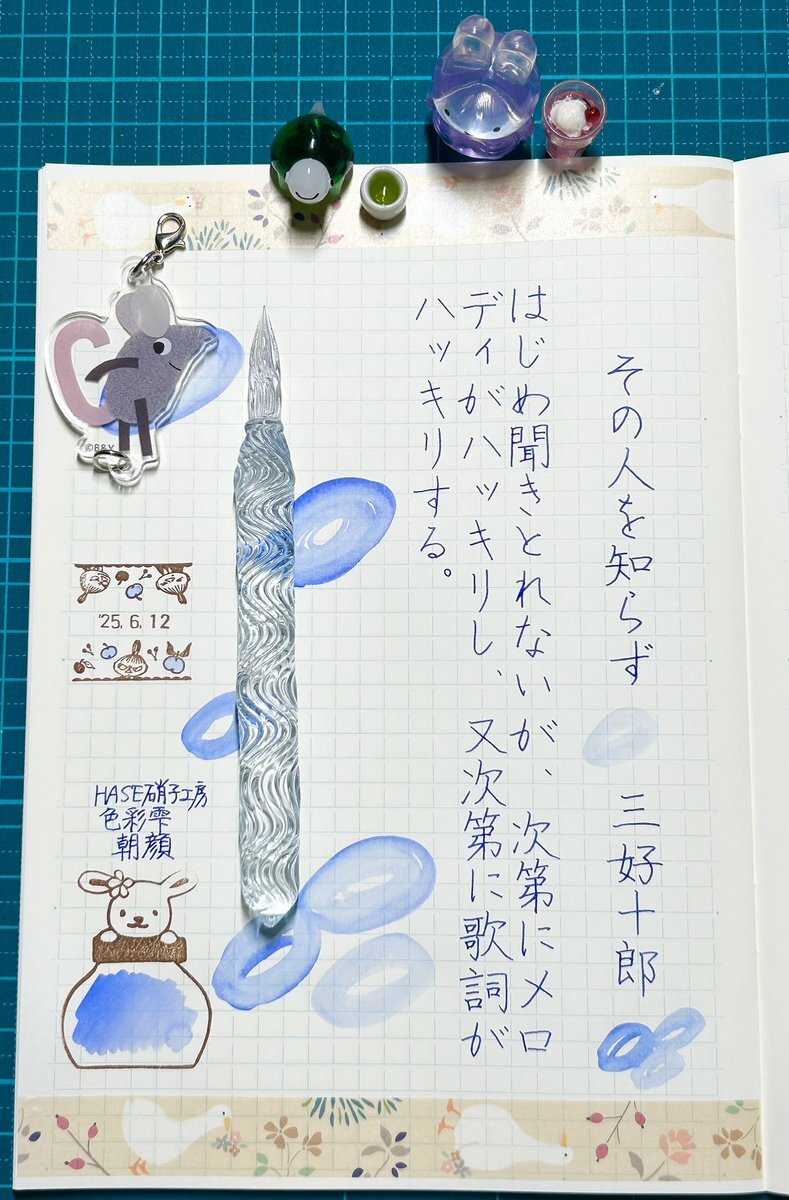 その人を知らず 三好十郎
はじめ聞きとれないが、次第にメロ
ディがハッキリし、又次第に歌詞が
ハッキリする。
©B&Y
'25.6.12
HASE硝子工房
色彩雫
朝顔